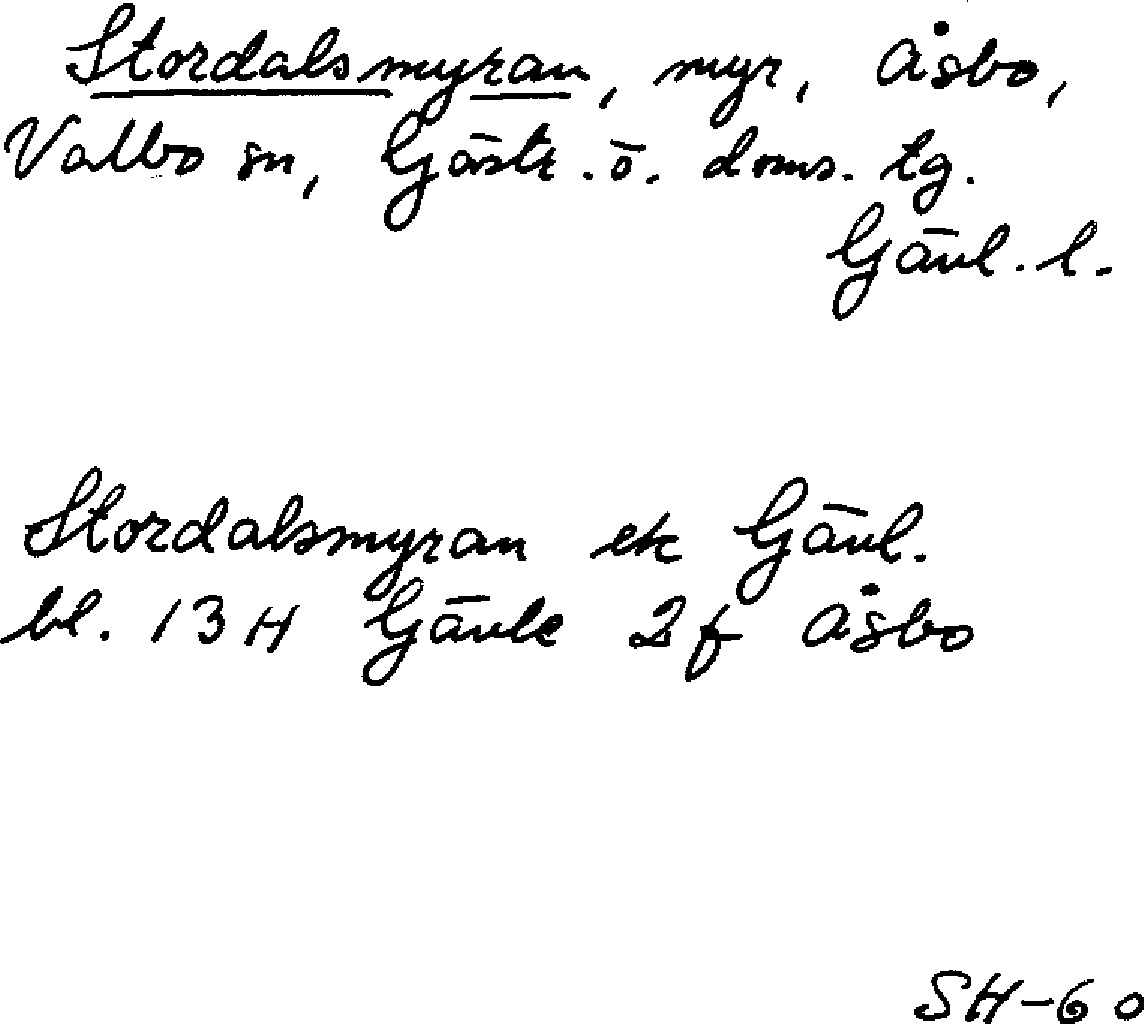 Stordalsmyran, myr, Åsbo,
Valbo sn, Gästr. ö. doms. tg.
Gävl. l.
Stordalsmyran ek Gävl.
bl. 13H Gävle 2f Åsbo
SH-60